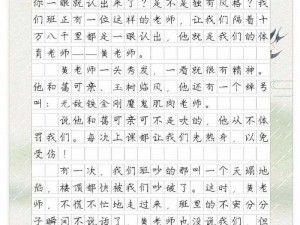 你一眼就认出来了？是不是独有风格？我
们班正有一位这样的老师，让我们隔着十
万八千里都是一眼认出，他就是我们的体
育老师——黄老师。
黄老师一头秀发，一看就很有精神。
他和蔼可亲、玉树临风，他还有一个绰号
叫：无敌铁金刚魔鬼肌肉老师。
说他和蔼可亲可不是吹的，他从不体
罚我们。每次上课都让我们先热身，以免
受伤！
有一次，我们班吵的那叫一个天塌地
陷，楼顶都快被我们吵破了。这时，黄老
师，不慌不忙地走来，班里的不安分分
子瞬间不说话了，黄老师也没说我们，但